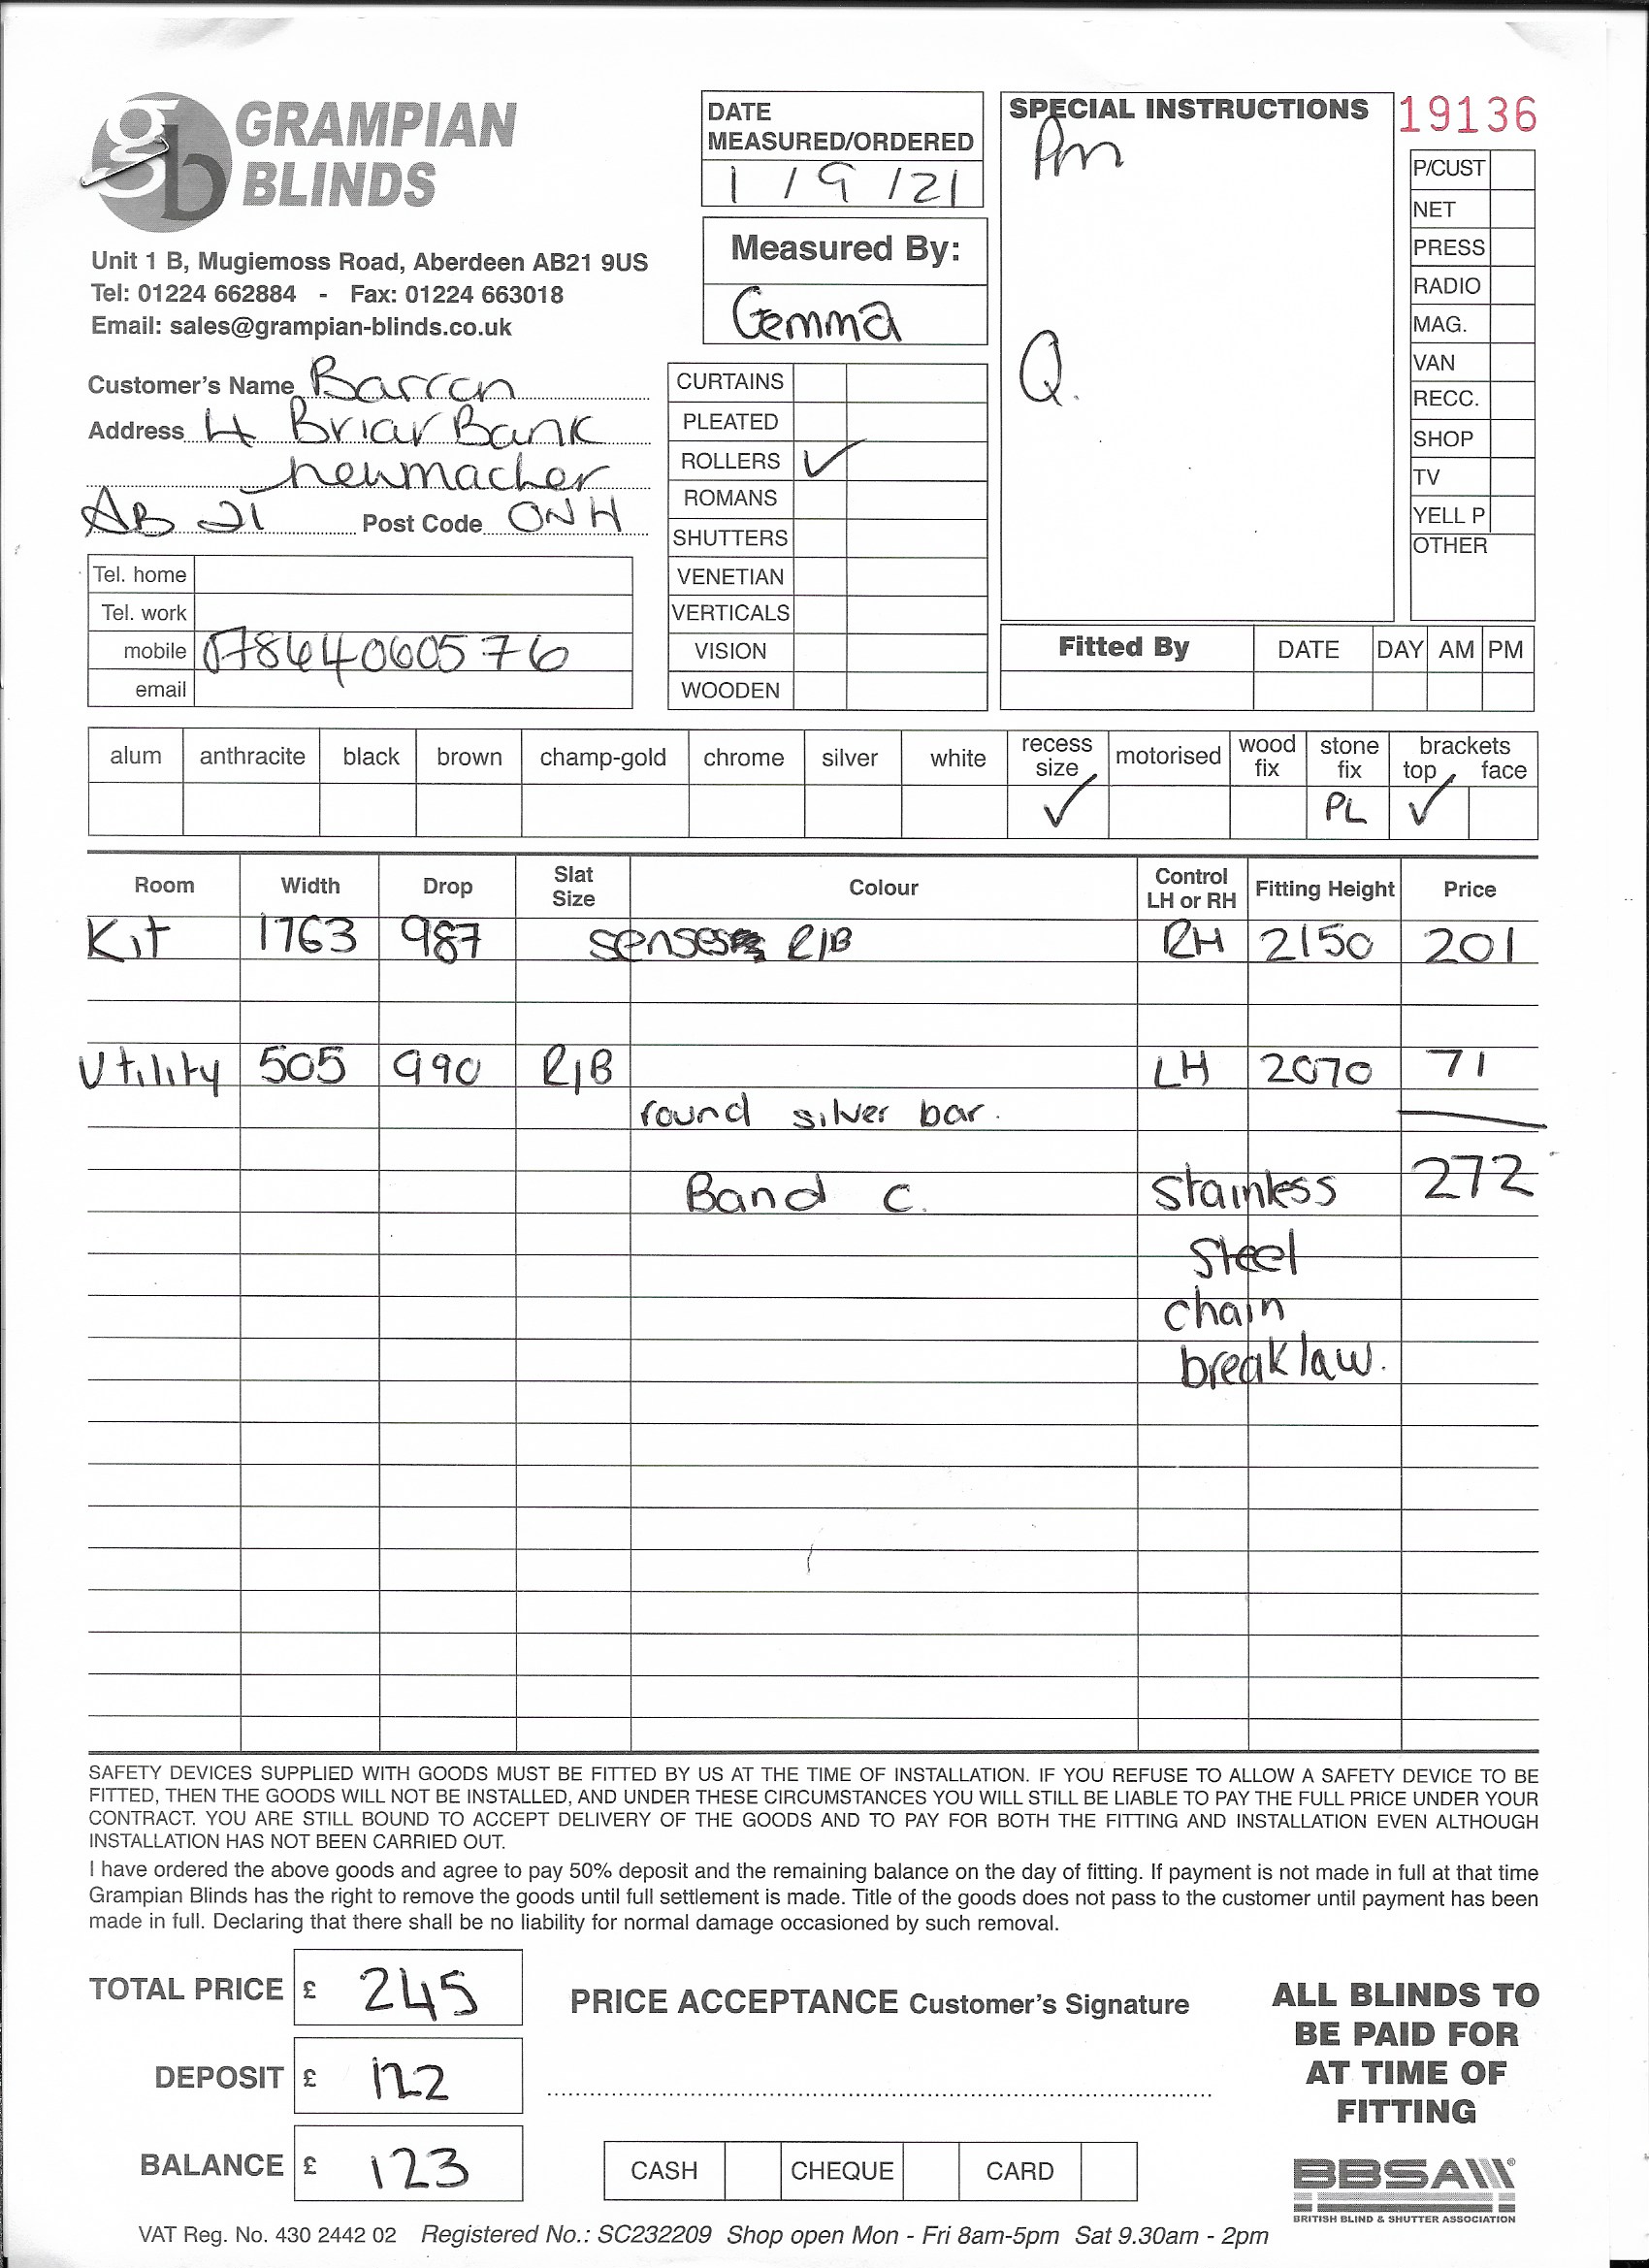 GRAMPIAN
BLINDS
Unit 1 B, Mugiemoss Road, Aberdeen AB21 9US
Tel: 01224 662884 - Fax: 01224 663018
Email: sales@grampian-blinds.co.uk
DATE
MEASURED/ORDERED
1 / 9 / 21
Measured By:
Gemma
SPECIAL INSTRUCTIONS
Pm
Q.
19136
P/CUST
NET
PRESS
RADIO
MAG.
VAN
RECC.
SHOP
TV
YELL P
OTHER
Customer's Name Barron
Address 4 Briar Bank
newmacher
AB 21 Post Code 0NH
Tel. home
Tel. work
mobile 07864060576
email
CURTAINS
PLEATED
ROLLERS ✓
ROMANS
SHUTTERS
VENETIAN
VERTICALS
VISION
WOODEN
Fitted By DATE DAY AM PM
alum anthracite black brown champ-gold chrome silver white recess size motorised wood fix stone fix brackets top face
✓ PL ✓
Room Width Drop Slat Size Colour Control LH or RH Fitting Height Price
Kit 1763 987 senses R/B RH 2150 201
Utility 505 990 R/B LH 2070 71
round silver bar.
Band C. Stainless 272
Steel
chain
break law.
SAFETY DEVICES SUPPLIED WITH GOODS MUST BE FITTED BY US AT THE TIME OF INSTALLATION. IF YOU REFUSE TO ALLOW A SAFETY DEVICE TO BE
FITTED, THEN THE GOODS WILL NOT BE INSTALLED, AND UNDER THESE CIRCUMSTANCES YOU WILL STILL BE LIABLE TO PAY THE FULL PRICE UNDER YOUR
CONTRACT. YOU ARE STILL BOUND TO ACCEPT DELIVERY OF THE GOODS AND TO PAY FOR BOTH THE FITTING AND INSTALLATION EVEN ALTHOUGH
INSTALLATION HAS NOT BEEN CARRIED OUT.
I have ordered the above goods and agree to pay 50% deposit and the remaining balance on the day of fitting. If payment is not made in full at that time
Grampian Blinds has the right to remove the goods until full settlement is made. Title of the goods does not pass to the customer until payment has been
made in full. Declaring that there shall be no liability for normal damage occasioned by such removal.
TOTAL PRICE £ 245
DEPOSIT £ 122
BALANCE £ 123
PRICE ACCEPTANCE Customer's Signature
CASH CHEQUE CARD
ALL BLINDS TO
BE PAID FOR
AT TIME OF
FITTING
BBSA
BRITISH BLIND & SHUTTER ASSOCIATION
VAT Reg. No. 430 2442 02 Registered No.: SC232209 Shop open Mon - Fri 8am-5pm Sat 9.30am - 2pm